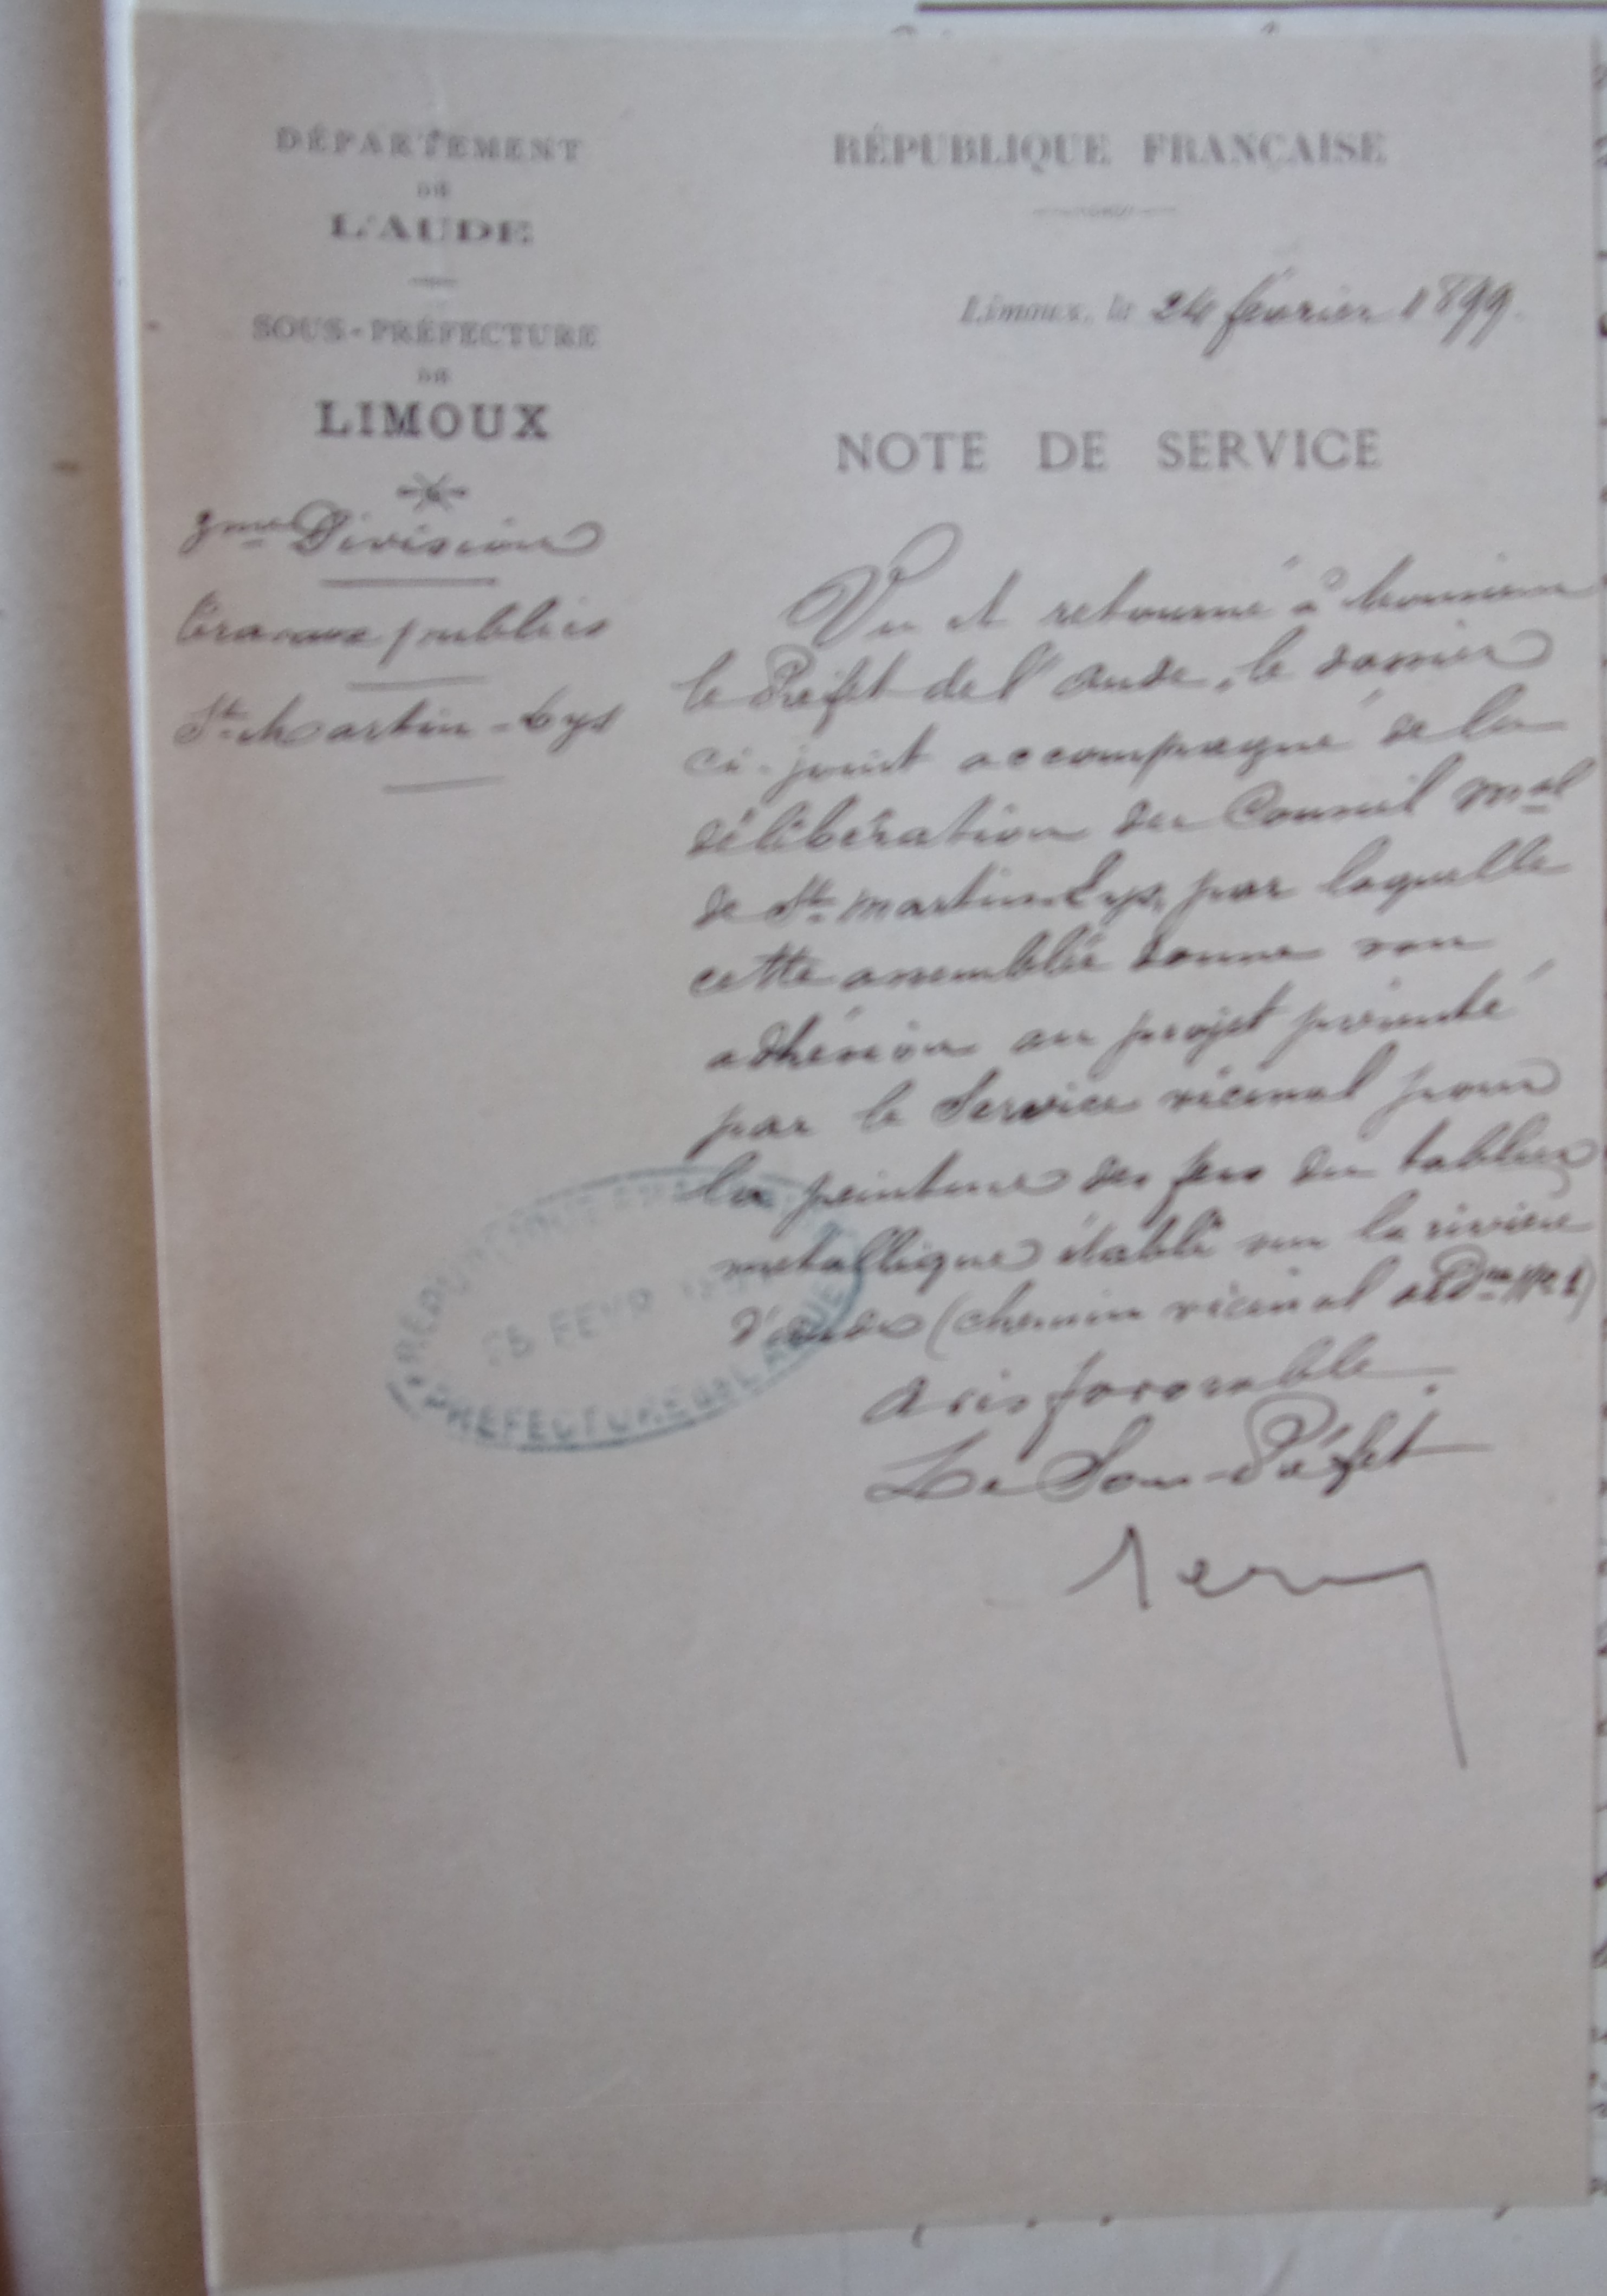 DÉPARTEMENT
DE
L'AUDE
SOUS-PRÉFECTURE
DE
LIMOUX
3me Division
Travaux publics
St Martin-Lys
RÉPUBLIQUE FRANÇAISE
Limoux, le 24 février 1899.
NOTE DE SERVICE
Vu et retourné à Monsieur
le Préfet de l'Aude, le dossier
ci-joint accompagné de la
délibération du Conseil mal
de St Martin Lys, par laquelle
cette assemblée donne son
adhésion au projet présenté
par le Service vicinal pour
la peinture des fers du tablier
métallique établi sur la rivière
d'Aude (chemin vicinal ordre No 1)
Avis favorable.
Le Sous-Préfet
FEVR
PRÉFECTURE DE L'AUDE